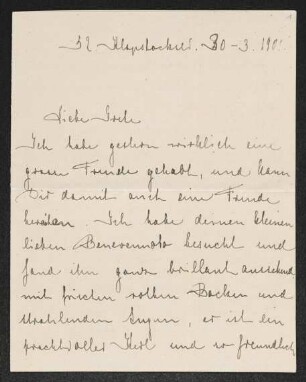 52 Klopstockstr. 30-3. 190
Liebe
Ich habe gestern wirklich eine
grosse Freude gehabt, und kann
Dir damit auch eine Freude
bereiten. Ich habe deinen kleinen
lieben Benvenuto besucht und
fand ihn ganz brillant aussehend
mit frischen rothen Backen und
strahlenden Augen, er ist ein
prachtvoller Kerl und so freundlich